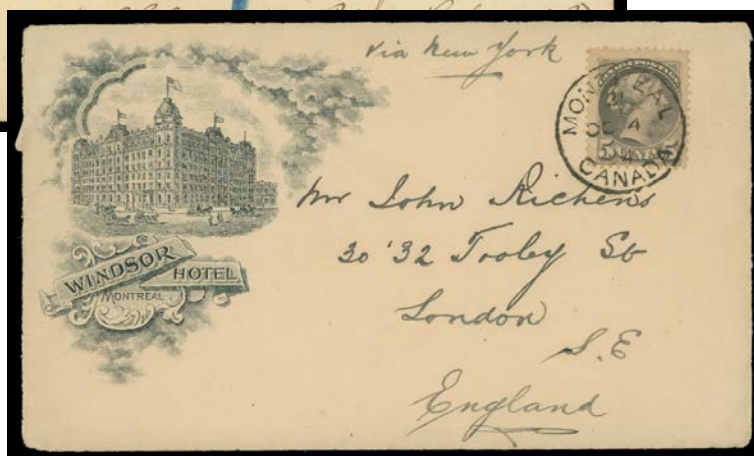 via New York
MONTREAL
OC 4
CANADA
5 CENTS
WINDSOR
HOTEL
MONTREAL
Mr John Richens
30 '32 Tooley St
London
S.E
England